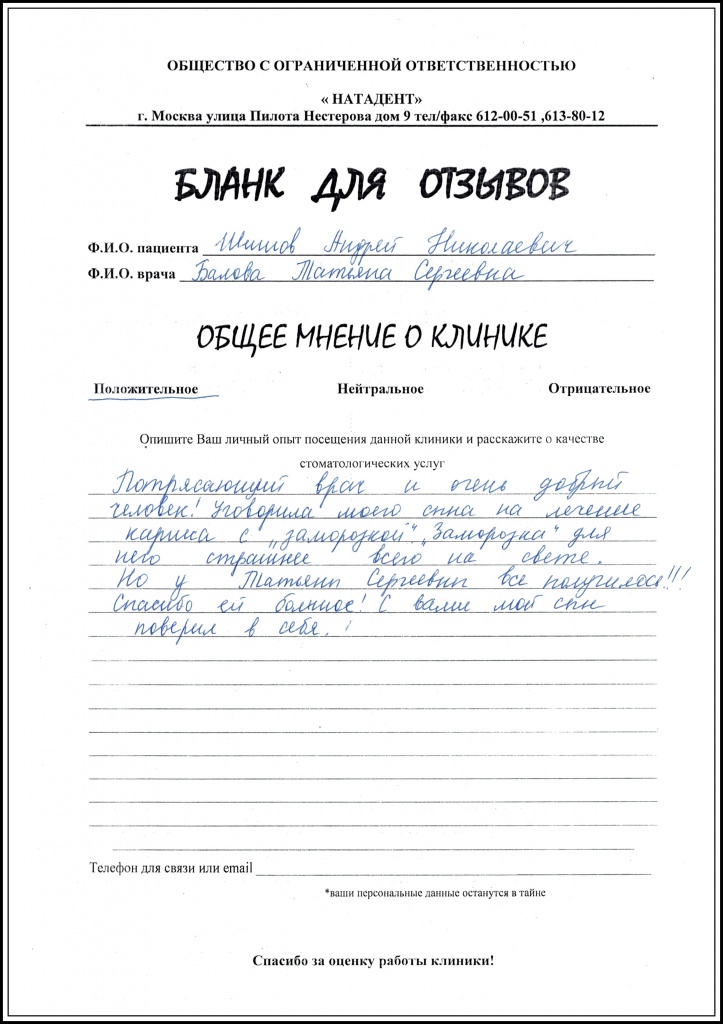 ОБЩЕСТВО С ОГРАНИЧЕННОЙ ОТВЕТСТВЕННОСТЬЮ
« НАТАДЕНТ»
г. Москва улица Пилота Нестерова дом 9 тел/факс 612-00-51 ,613-80-12
БЛАНК ДЛЯ ОТЗЫВОВ
Ф.И.О. пациента Шишов Андрей Николаевич
Ф.И.О. врача Балова Татьяна Сергеевна
ОБЩЕЕ МНЕНИЕ О КЛИНИКЕ
Положительное Нейтральное Отрицательное
Опишите Ваш личный опыт посещения данной клиники и расскажите о качестве
стоматологических услуг
Потрясающий врач и очень добрый
человек! Уговорила моего сына на лечение
кариеса с „заморозкой“. „Заморозка“ для
него страшнее всего на свете.
Но у Татьяны Сергеевны все получилось!!!
Спасибо ей большое! С вами мой сын
поверил в себя.
Телефон для связи или email
*ваши персональные данные останутся в тайне
Спасибо за оценку работы клиники!